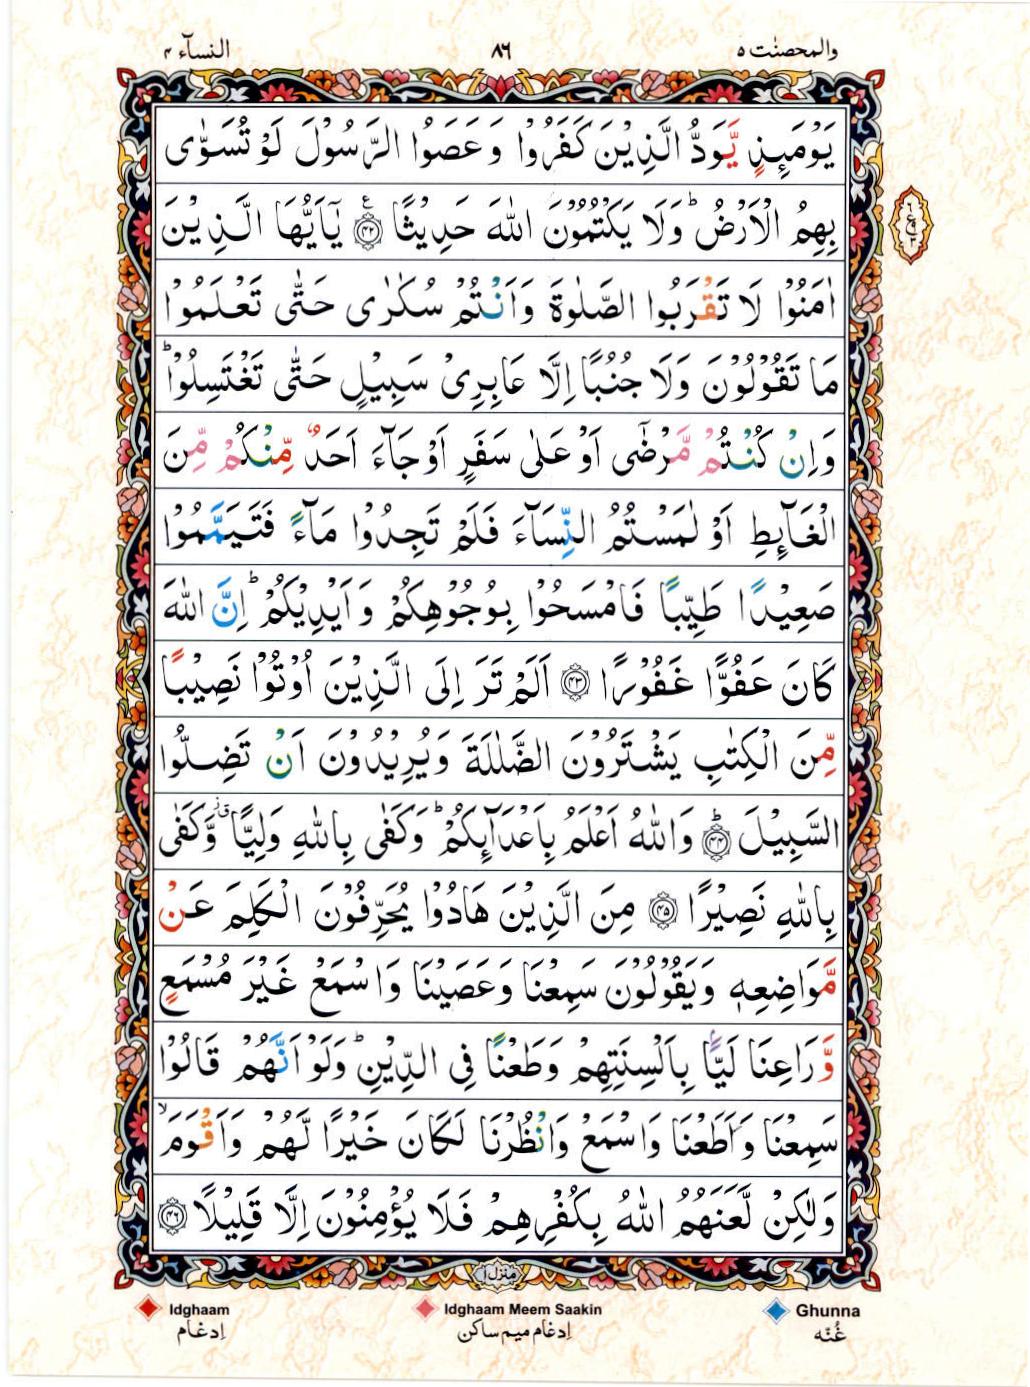 والمحصنٰت ۵ ۸۶ النسآء ۴
يَوْمَىِٕذٍ يَّوَدُّ الَّذِيْنَ كَفَرُوْا وَعَصَوُا الرَّسُوْلَ لَوْ تُسَوّٰى
بِهِمُ الْاَرْضُ ؕ وَلَا يَكْتُمُوْنَ اللّٰهَ حَدِيْثًا ﴿۴۲﴾ يٰۤاَيُّهَا الَّذِيْنَ
اٰمَنُوْا لَا تَقْرَبُوا الصَّلٰوةَ وَاَنْتُمْ سُكٰرٰى حَتّٰى تَعْلَمُوْا
مَا تَقُوْلُوْنَ وَلَا جُنُبًا اِلَّا عَابِرِىْ سَبِيْلٍ حَتّٰى تَغْتَسِلُوْا ؕ
وَاِنْ كُنْتُمْ مَّرْضٰۤى اَوْ عَلٰى سَفَرٍ اَوْ جَآءَ اَحَدٌ مِّنْكُمْ مِّنَ
الْغَآىِٕطِ اَوْ لٰمَسْتُمُ النِّسَآءَ فَلَمْ تَجِدُوْا مَآءً فَتَيَمَّمُوْا
صَعِيْدًا طَيِّبًا فَامْسَحُوْا بِوُجُوْهِكُمْ وَاَيْدِيْكُمْ ؕ اِنَّ اللّٰهَ
كَانَ عَفُوًّا غَفُوْرًا ﴿۴۳﴾ اَلَمْ تَرَ اِلَى الَّذِيْنَ اُوْتُوْا نَصِيْبًا
مِّنَ الْكِتٰبِ يَشْتَرُوْنَ الضَّلٰلَةَ وَيُرِيْدُوْنَ اَنْ تَضِلُّوا
السَّبِيْلَ ﴿۴۴﴾ ؕ وَاللّٰهُ اَعْلَمُ بِاَعْدَآىِٕكُمْ ؕ وَكَفٰى بِاللّٰهِ وَلِيًّا ۗۙ وَّكَفٰى
بِاللّٰهِ نَصِيْرًا ﴿۴۵﴾ مِنَ الَّذِيْنَ هَادُوْا يُحَرِّفُوْنَ الْكَلِمَ عَنْ
مَّوَاضِعِهٖ وَيَقُوْلُوْنَ سَمِعْنَا وَعَصَيْنَا وَاسْمَعْ غَيْرَ مُسْمَعٍ
وَّرَاعِنَا لَيًّۢا بِاَلْسِنَتِهِمْ وَطَعْنًا فِى الدِّيْنِ ؕ وَلَوْ اَنَّهُمْ قَالُوْا
سَمِعْنَا وَاَطَعْنَا وَاسْمَعْ وَانْظُرْنَا لَكَانَ خَيْرًا لَّهُمْ وَاَقْوَمَ ۙ
وَلٰكِنْ لَّعَنَهُمُ اللّٰهُ بِكُفْرِهِمْ فَلَا يُؤْمِنُوْنَ اِلَّا قَلِيْلًا ﴿۴۶﴾
منزل ۱
Idghaam Idghaam Meem Saakin Ghunna
اِدغام اِدغام میم ساکن غُنّه